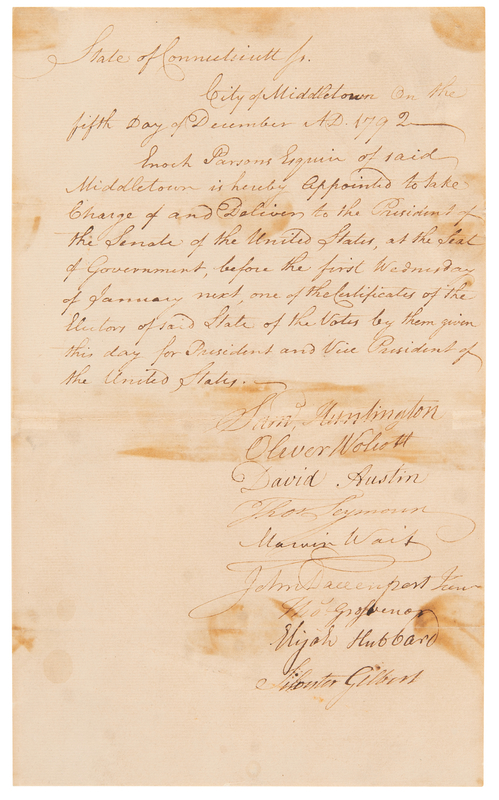 State of Connecticutt Ss.
City of Middletown On the
fifth Day of December A.D. 1792
Enoch Parsons Esquire of said
Middletown is hereby Appointed to take
Charge of and Deliver to the President of
the Senate of the United States, at the Seat
of Government, before the first Wednesday
of January next, one of the Certificates of the
Electors of said State of the Votes by them given
this day for President and Vice President of
the United States.
Sam. Huntington
Oliver Wolcott
David Austin
Thos Seymour
Marvin Wait
John Davenport Junr
Thos Grosvenor
Elijah Hubbard
Silvester Gilbert